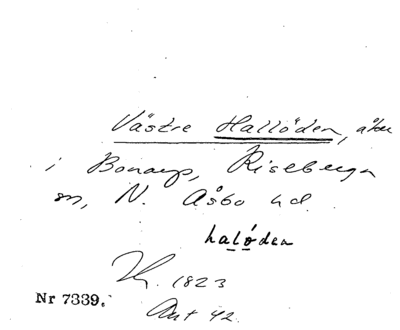 Västre Hallöden, åker
i Bonarp, Riseberga
sn, N. Åsbo hd.
halöden
1823
Nr 7339.
Akt 42.